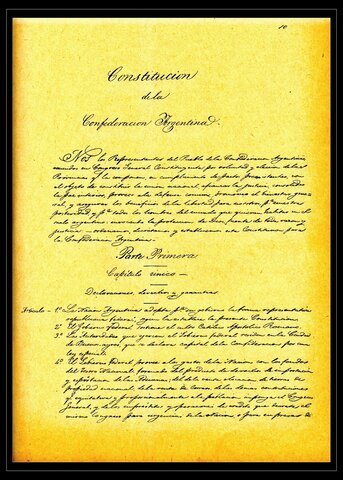 10
Constitucion
de la
Confederacion Argentina.
Nos los Representantes del Pueblo de la Confederacion Argentina,
reunidos en Congreso General Constituyente por voluntad y eleccion de las
Provincias q.e la componen, en cumplimiento de pactos preexistentes, con
el objeto de constituir la union nacional, afianzar la justicia, consolidar
la paz interior, proveer a la defensa comun, promover el bienestar gene-
ral, y asegurar los beneficios de la libertad para nosotros, p.a nuestra
posteridad y p.a todos los hombres del mundo que quieran habitar en el
suelo argentino: invocando la proteccion de Dios, fuente de toda razon y
justicia: ordenamos, decretamos y establecemos esta Constitucion para
la Confederacion Argentina.
Parte Primera
Capitulo único
Declaraciones, derechos y garantias
Articulo 1.º La Nacion Argentina adopta p.a su gobierno la forma representativa
republicana federal, segun la establece la presente Constitucion.
2.º El Gobierno Federal sostiene el culto Catolico Apostolico Romano.
3.º Las Autoridades que ejercen el Gobierno federal residen en la Ciudad
de Buenos Ayres, que se declara capital de la Confederacion por una
ley especial.
4.º El Gobierno Federal provee a los gastos de la Nacion con los fondos
del Tesoro Nacional, formado del producto de derechos de importacion
y esportacion de las Aduanas, del de la venta o locacion de tierras de
propiedad nacional, de la renta de Correos, de las demas contribuciones
q.e equitativa y proporcionalmente a la poblacion imponga el Congreso
General, y de los emprestitos y operaciones de credito que decrete el
mismo Congreso para urgencias de la Nacion o para empresas de